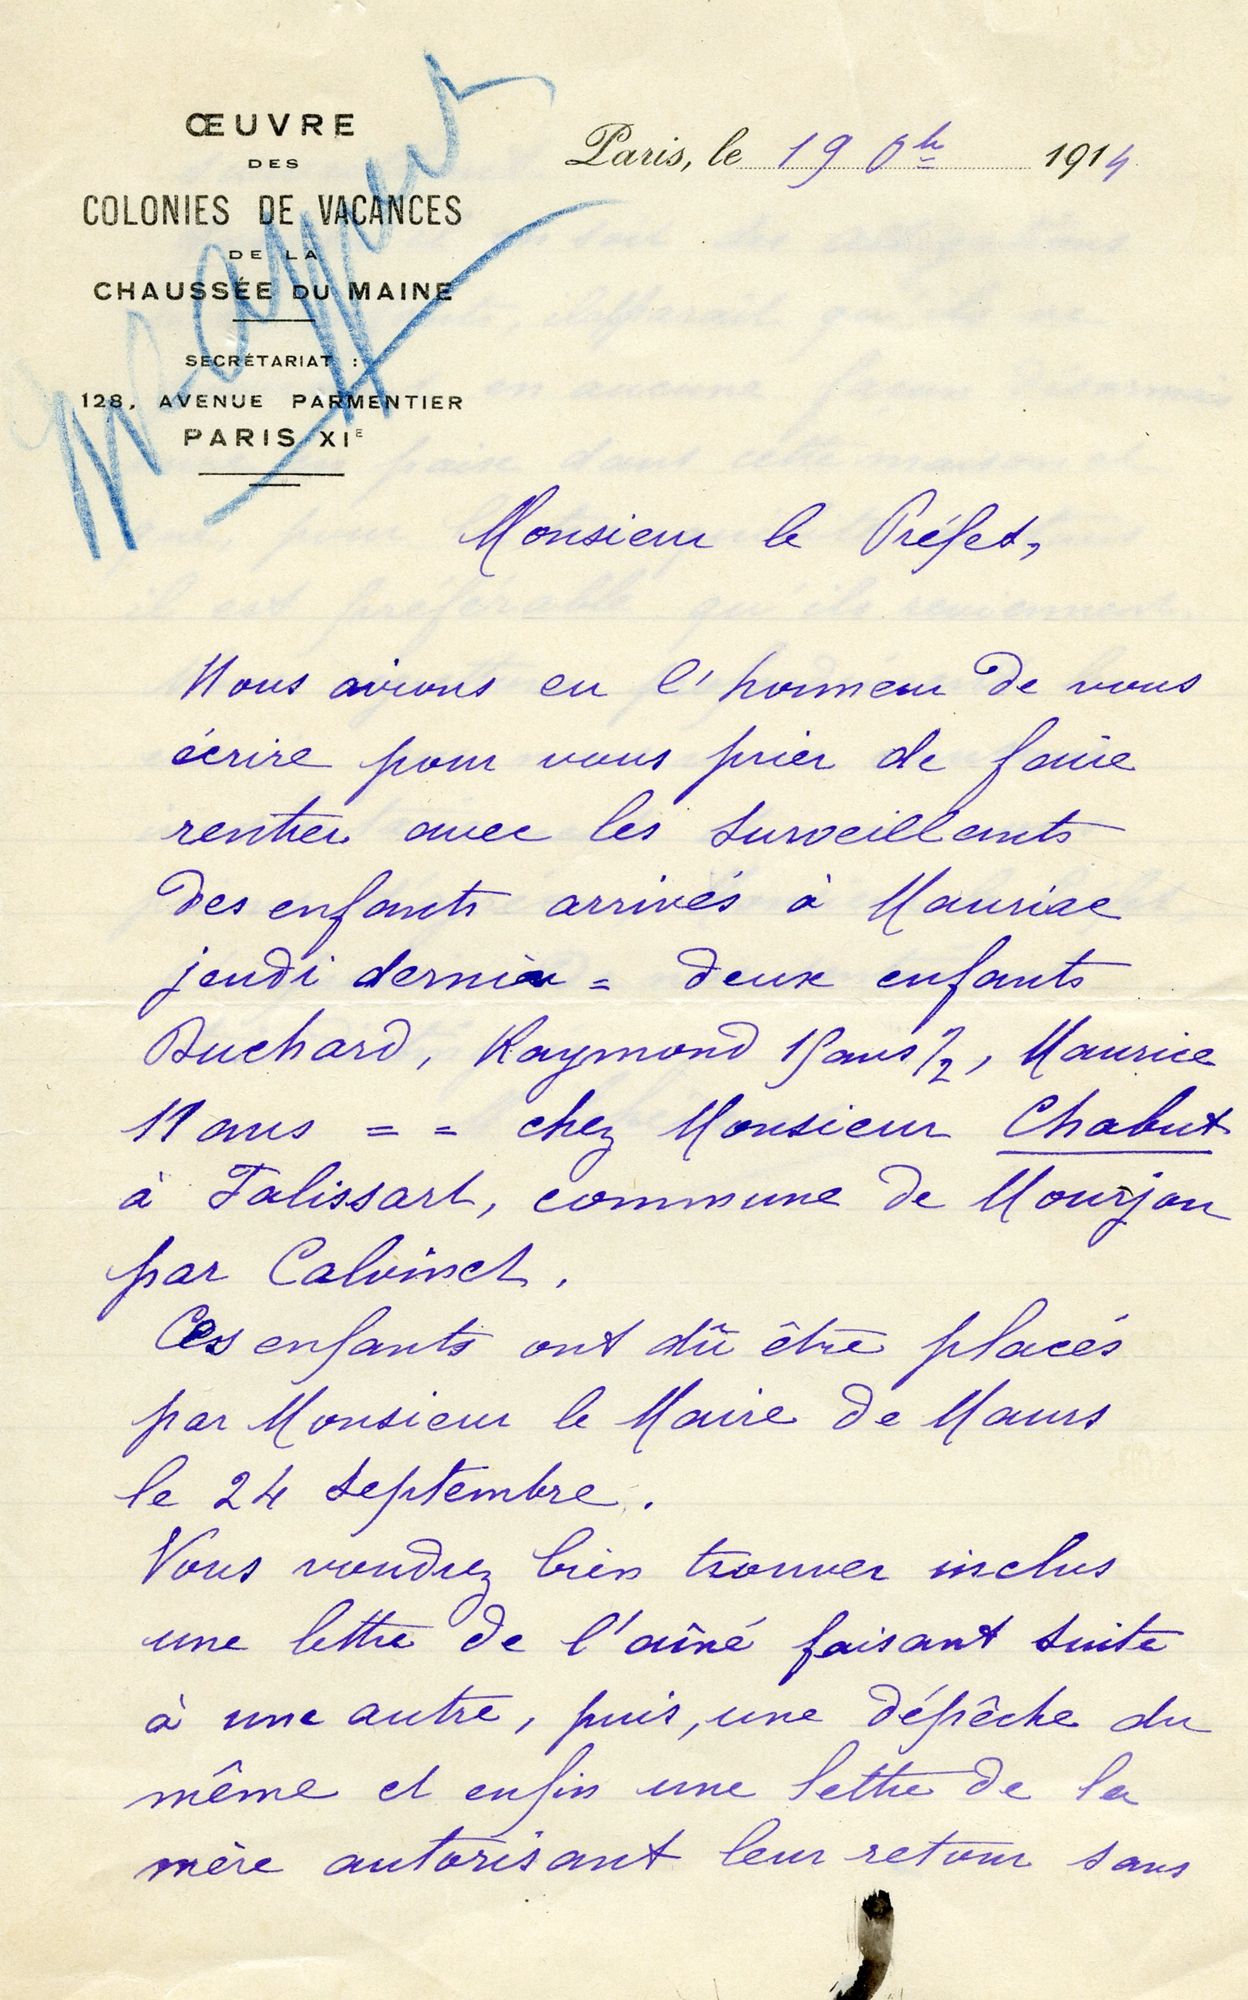 ŒUVRE
DES
COLONIES DE VACANCES
DE LA
CHAUSSÉE DU MAINE
SECRÉTARIAT :
128, AVENUE PARMENTIER
PARIS XIE
Paris, le 19 8bre 1914
Monsieur le Préfet,
Nous avions eu l'honneur de vous
écrire pour vous prier de faire
rentrer avec les surveillants
des enfants arrivés à Mauriac
jeudi dernier = deux enfants
Buchard, Raymond 15 ans 1/2, Maurice
11 ans = = chez Monsieur Chabut
à Falissart, commune de Mourjou
par Calvinet.
Ces enfants ont dû être placés
par Monsieur le Maire de Maurs
le 24 septembre.
Vous voudrez bien trouver inclus
une lettre de l'aîné faisant suite
à une autre, puis, une dépêche du
même et enfin une lettre de la
mère autorisant leur retour sans